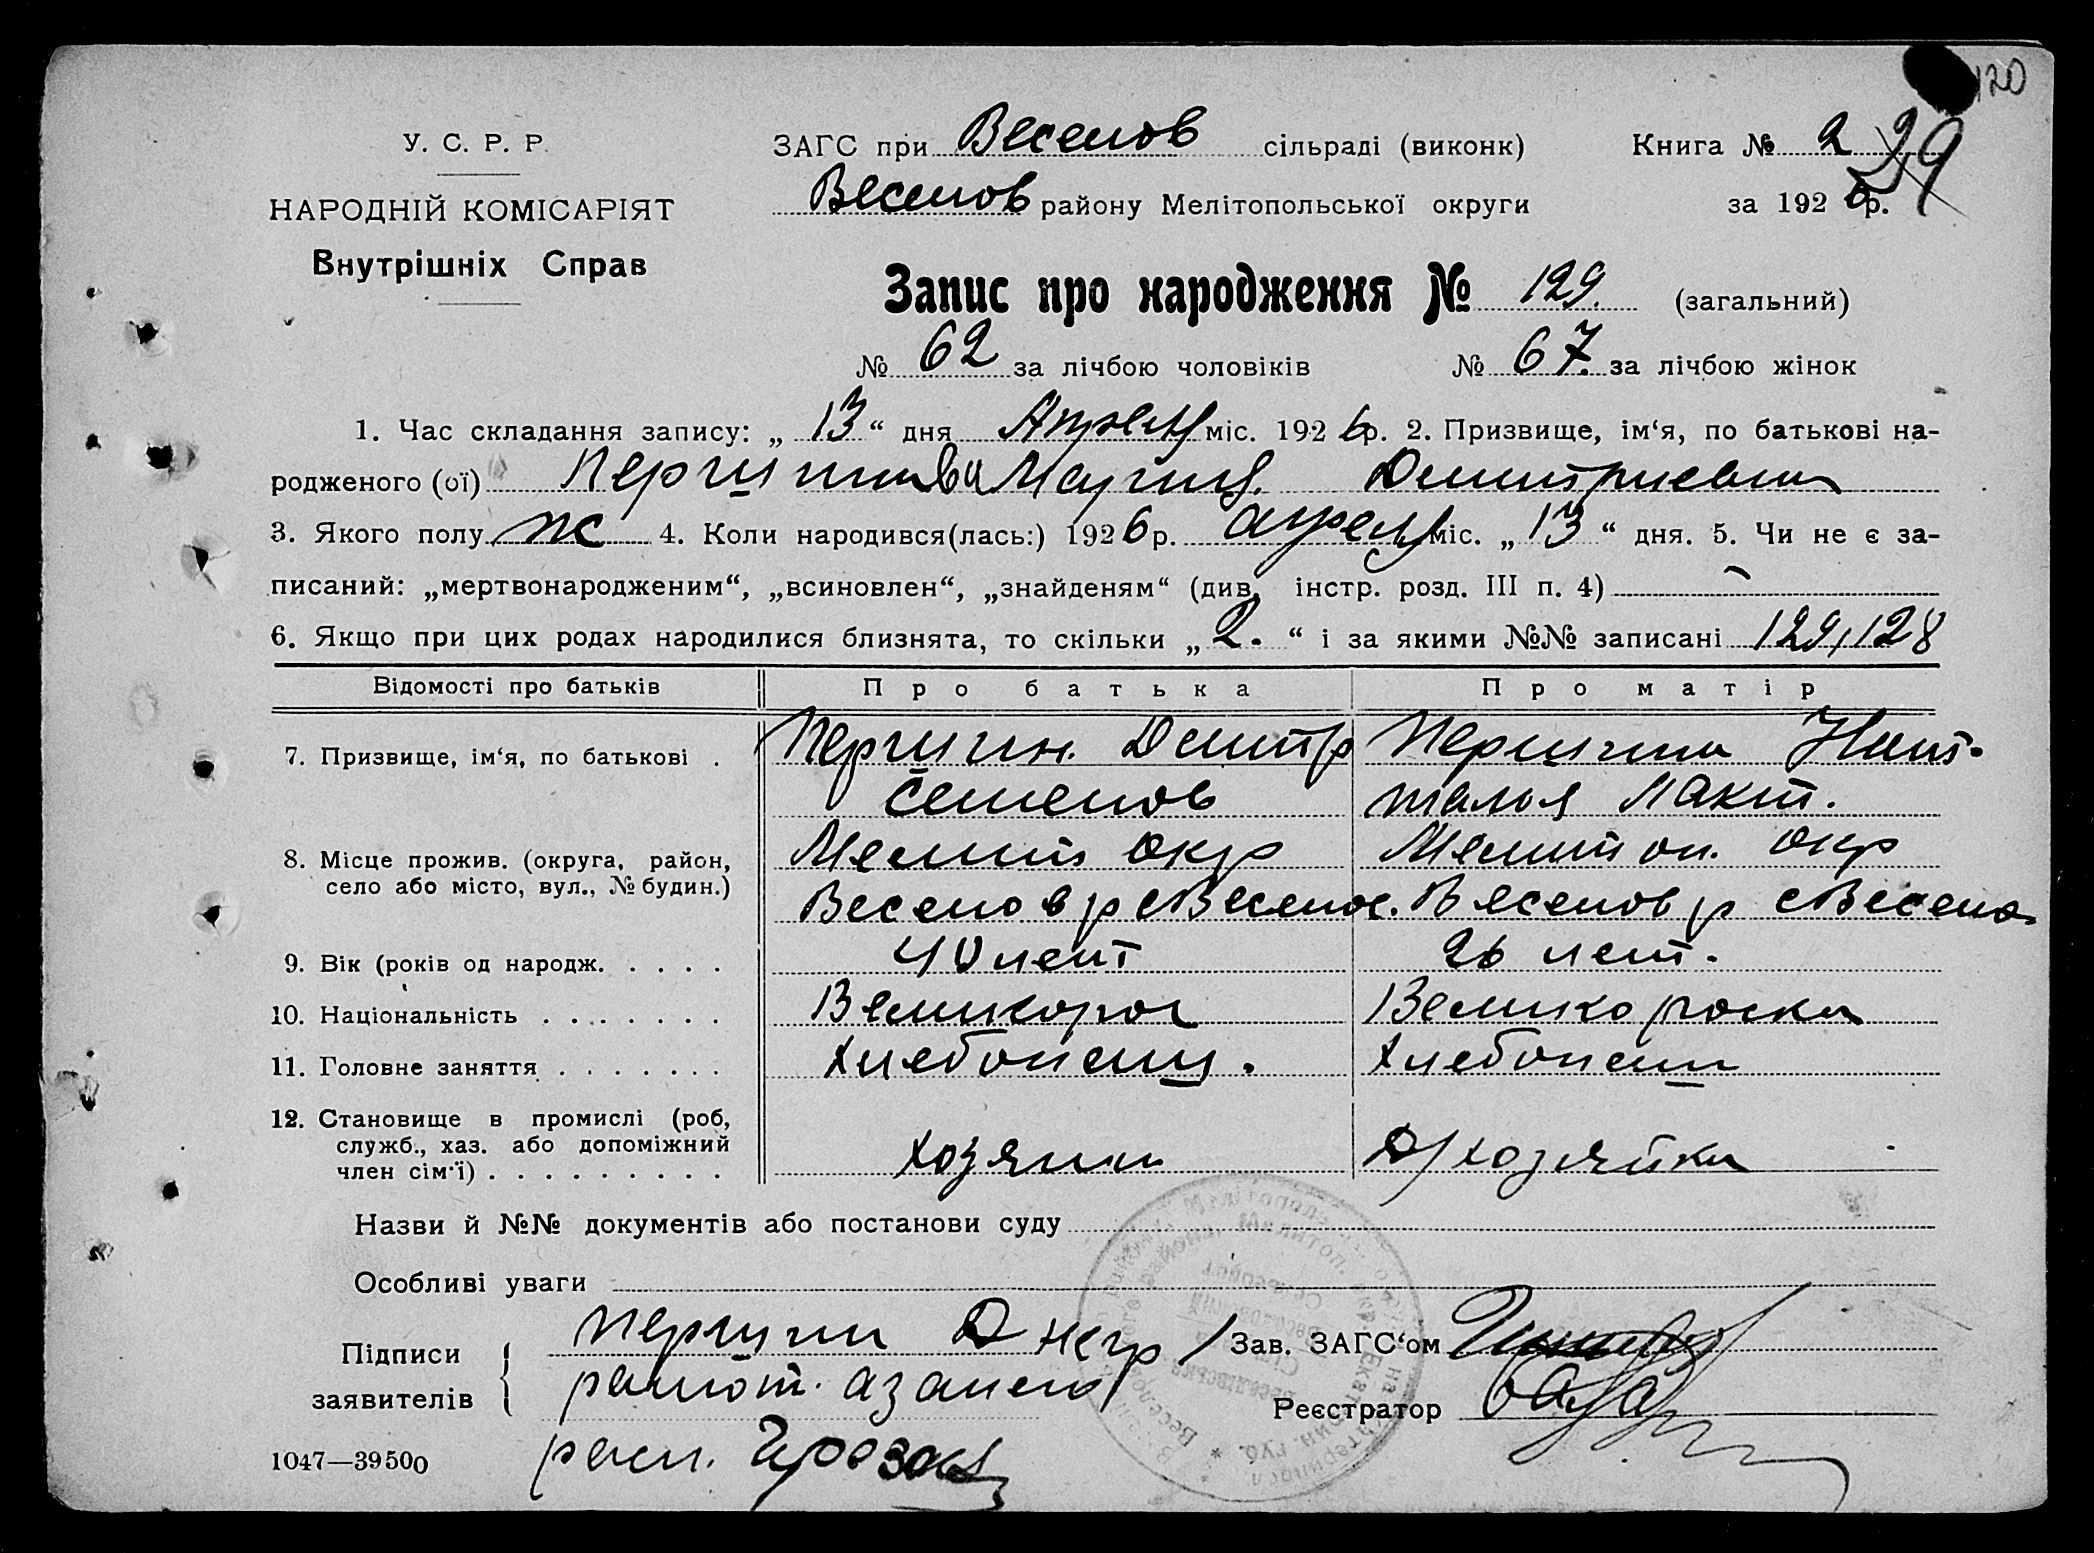 120
У. С. Р. Р.
НАРОДНІЙ КОМІСАРІЯТ
Внутрішніх Справ
ЗАГС при Веселов сільраді (виконк)
Веселов району Мелітопольської округи
Книга № 2 29
за 1926 р.
Запис про народження № 129. (загальний)
№ 62 за лічбою чоловіків № 67. за лічбою жінок
1. Час складання запису: „ 13 “ дня Апреля міс. 1926 р. 2. Призвище, ім‘я, по батькові на-
родженого (ої) Дмитриевна
3. Якого полу ж 4. Коли народився(лась:) 1926 р. апреля міс. „ 13 “ дня. 5. Чи не є за-
писаний: „мертвонародженим“, „всиновлен“, „знайденям“ (див. інстр. розд. III п. 4) —
6. Якщо при цих родах народилися близнята, то скільки „ 2. “ і за якими №№ записані 129, 128
Відомості про батьків Про батька Про матір
7. Призвище, ім‘я, по батькові . Дмитр Ната-
Семенов талья
8. Місце прожив. (округа, район, Мелит окр Мелитоп. окр
село або місто, вул., № будин.) Веселов р с Веселое. Веселов р с Весело
9. Вік (років од народж. . . . . 40 лет 26 лет.
10. Національність . . . . . . . Великорос Великороска
11. Головне заняття . . . . . . . Хлебопаш. Хлебопаш
12. Становище в промислі (роб,
служб., хаз. або допоміжний
член сім‘ї) . . . . . . . . . хозяин Д/хозяйка
Назви й №№ документів або постанови суду
Особливі уваги
Підписи
заявителів
Д негр
рамот. а за него
расп.
Зав. ЗАГС‘ом
Реєстратор
1047—39500